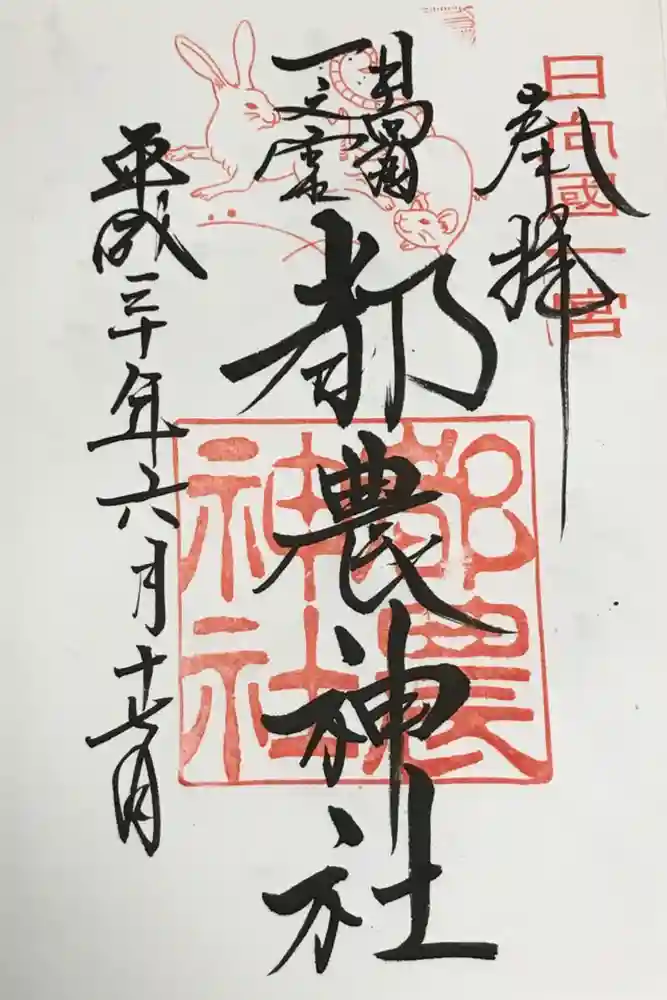 日向國一宮
奉拝
一之宮
都農神社
都農神社
平成三十年六月十七日